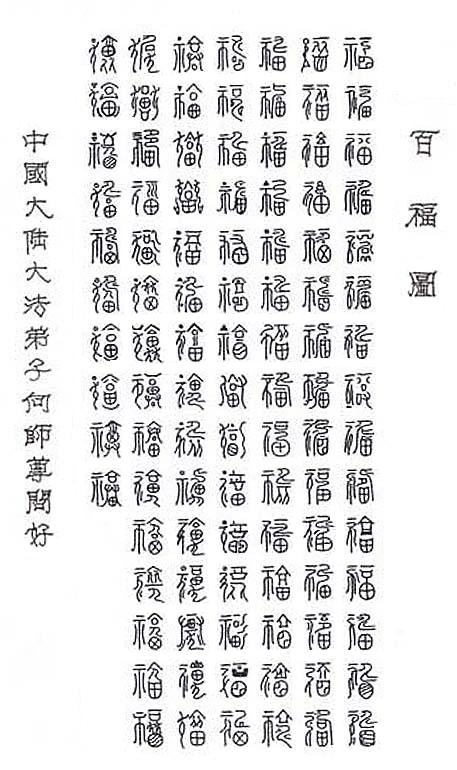 百福圖
福福福福福福福福福福福福福福福
福福福福福福福福福福福福福福福
福福福福福福福福福福福福福福福
福福福福福福福福福福福福福福福
福福福福福福福福福福福福福福福
福福福福福福福福福福福福福福福
福福福福福福福福福福
中國大陆大法弟子向師尊問好